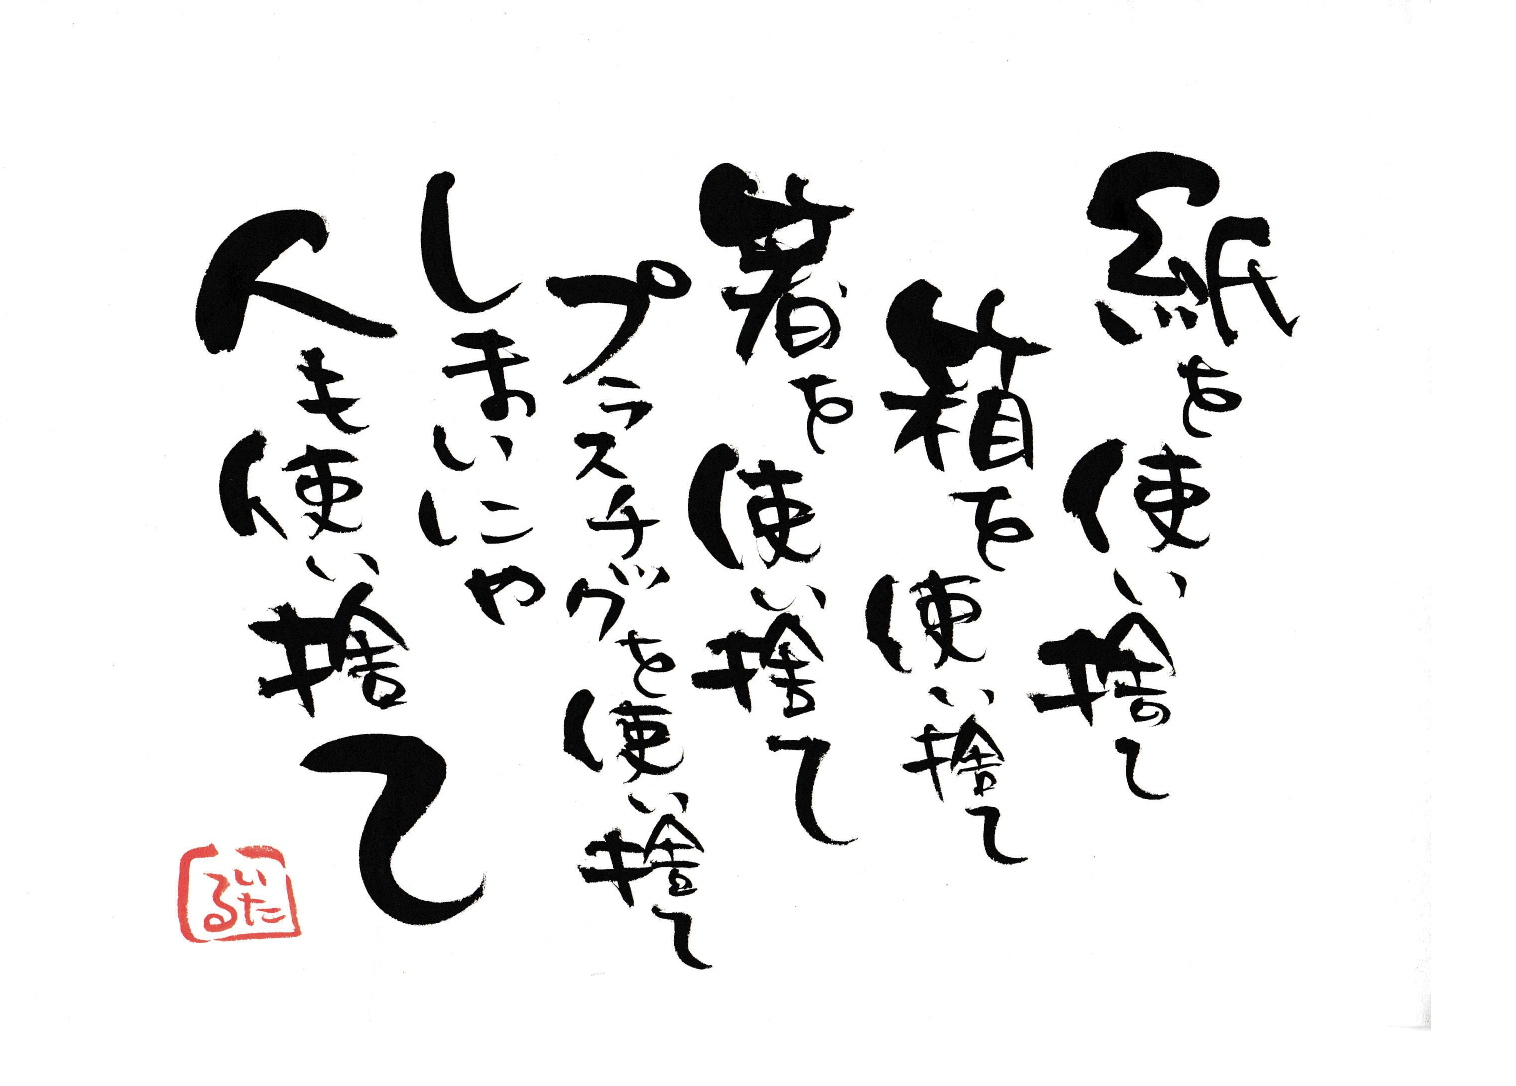 紙を使い捨て
箱を使い捨て
箸を使い捨て
プラスチックを使い捨て
しまいにゃ
人も使い捨て
いたる